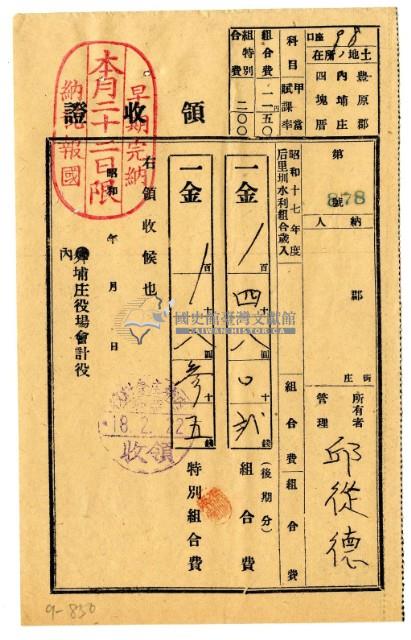 口座 98
土地ノ所在
豊原郡
內埔庄
四塊厝
科目
甲當賦課率
組合費 一一五〇
組合特別費 二〇〇
領收證
早期完納
本月二十二日限
納稅報國
第 878 號
納人
郡
街庄
所有者
管理
邱從德
昭和十七年度
后里圳水利組合歲入
組合費
組合費
一金
百
四十
八圓
〇十
貳錢
(後期分)
組合費
一金
百
十
八圓
參十
五錢
特別組合費
右領收候也
昭和 年 月 日
內埔庄役場會計役
18.2.22
領收
國史館臺灣文獻館
TAIWAN HISTORICA
9-830